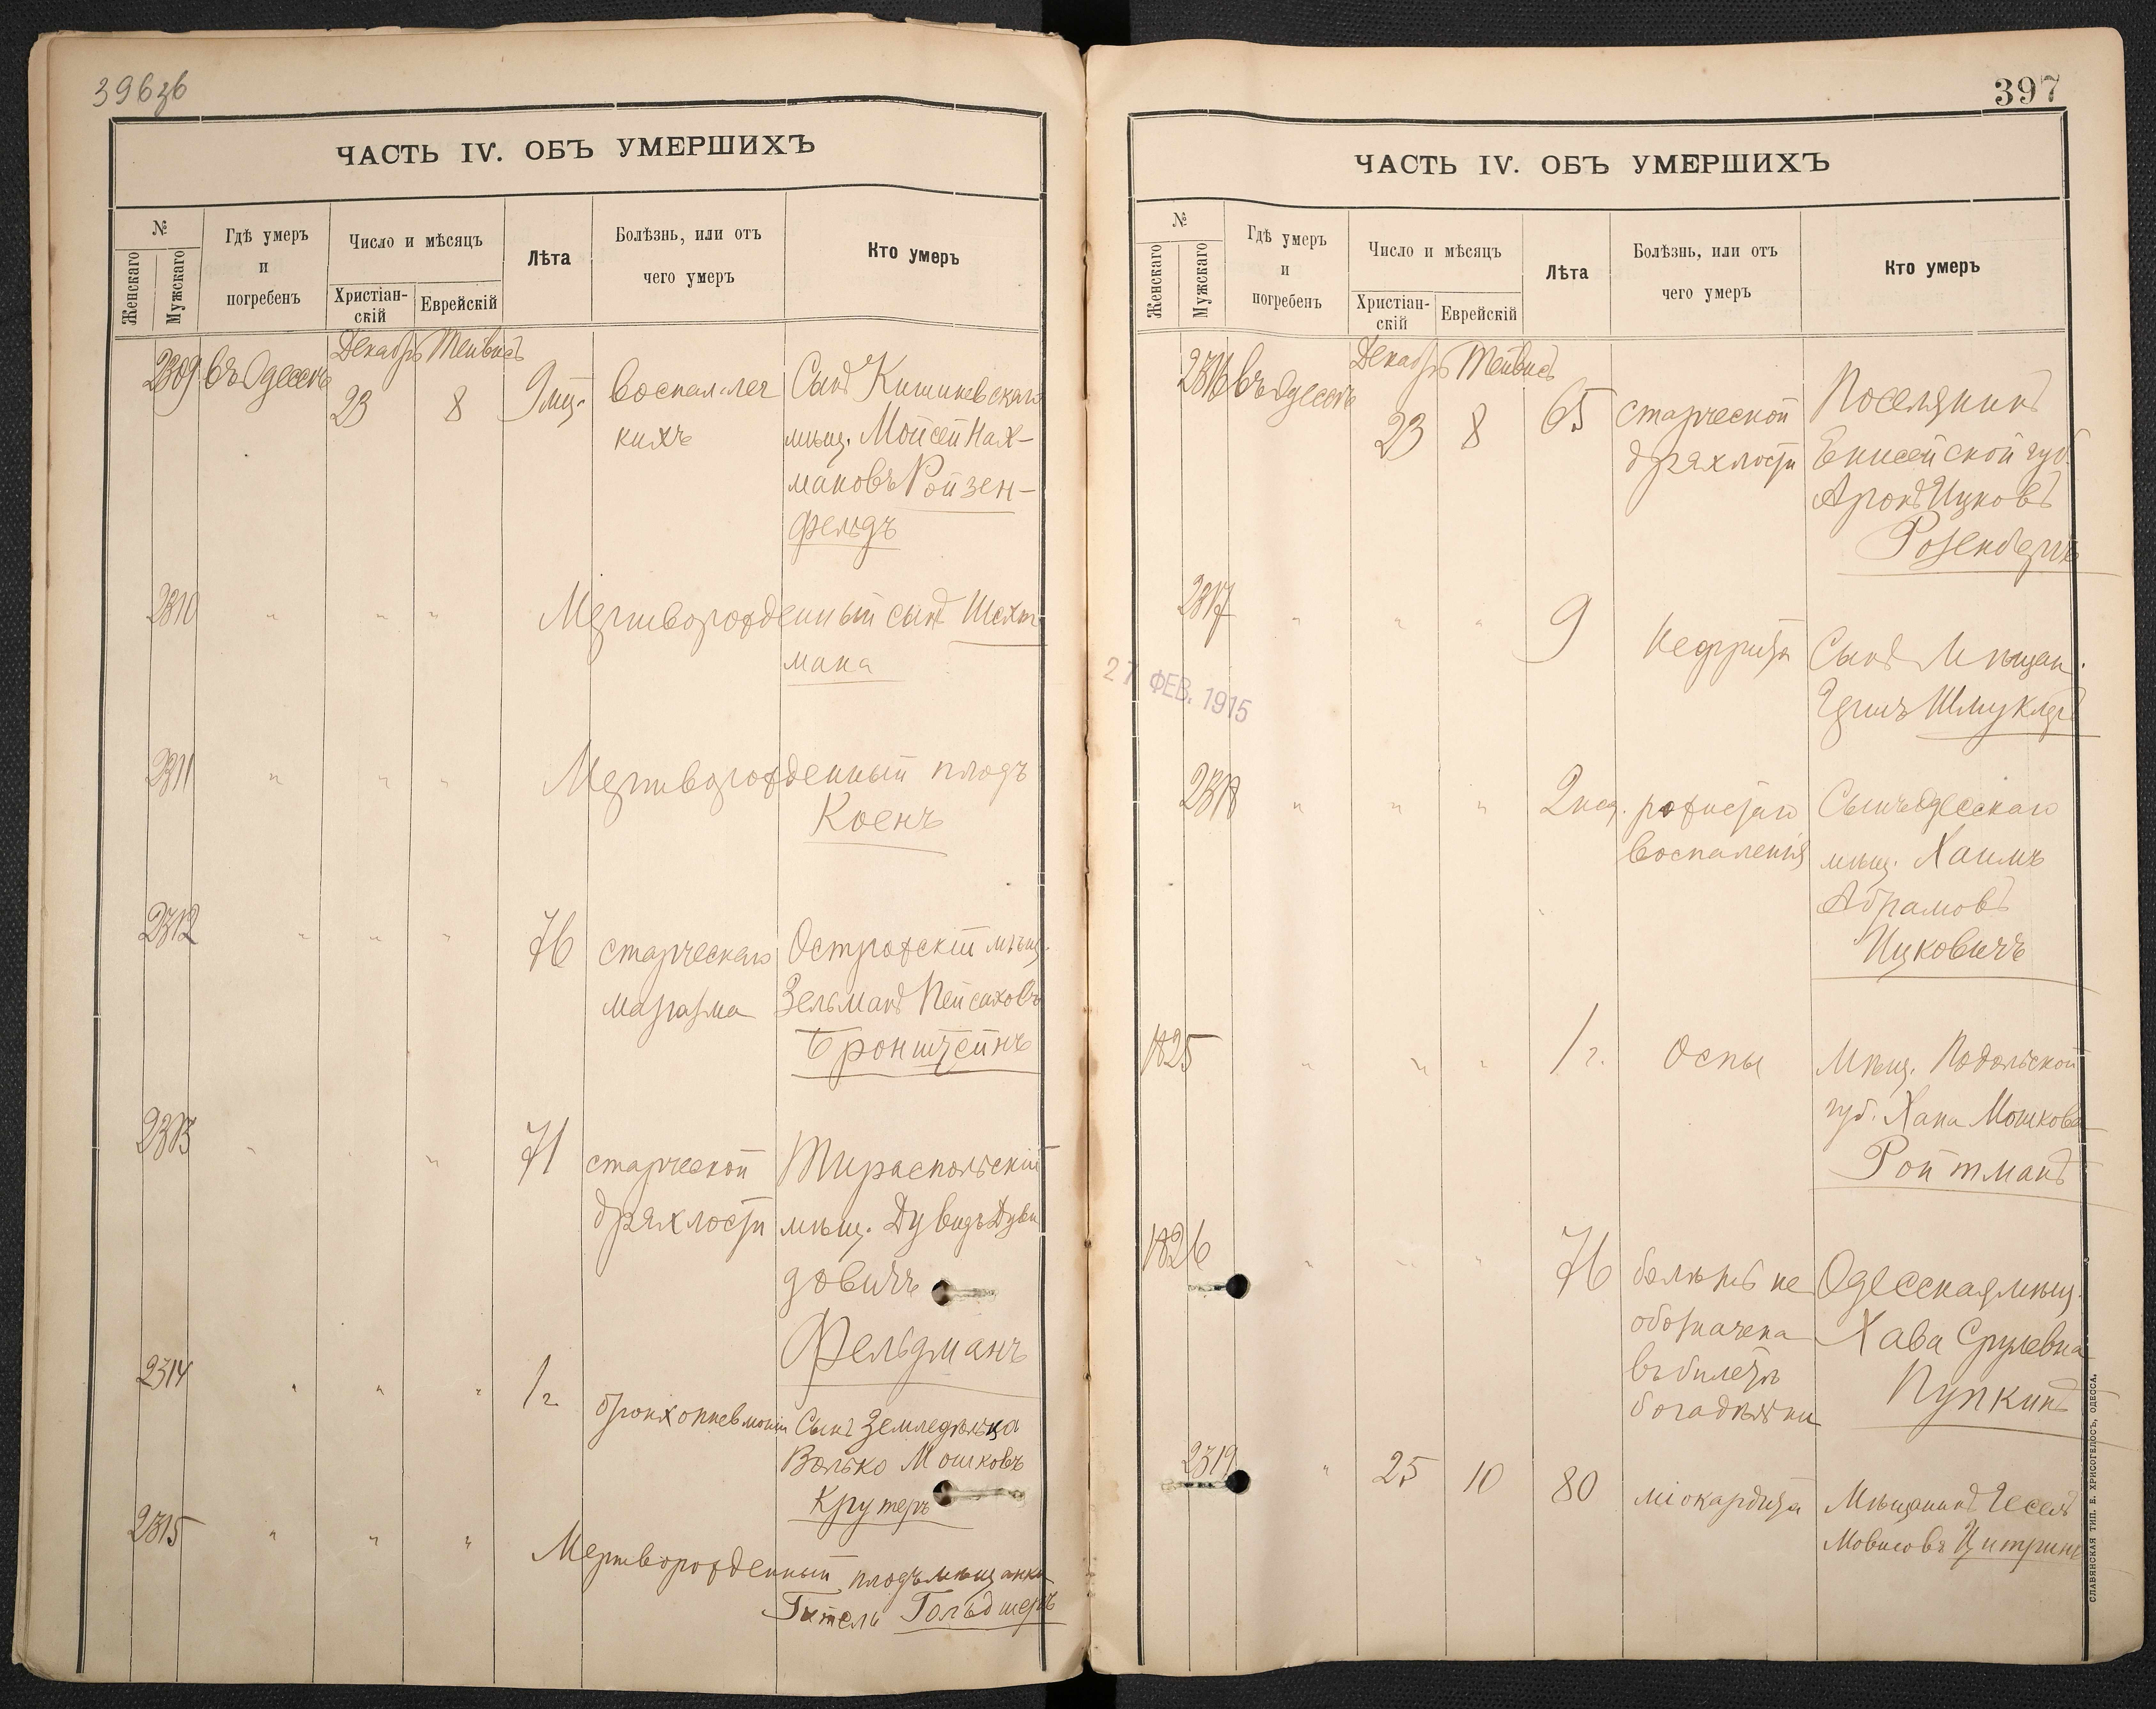 396 зв
ЧАСТЬ IV. ОБЪ УМЕРШИХЪ
№
Женскаго
Мужскаго
Гдѣ умеръ
и
погребенъ
Число и мѣсяцъ
Христіан-
скій
Еврейскій
Лѣта
Болѣзнь, или отъ
чего умеръ
Кто умеръ
Декабрь Тейвисъ
2309 въ Одессѣ 23 8 9 мц. воспал. лег Сынъ Кишиневскаго
кихъ мѣщ. Мойсей Нах-
мановъ Ройзен-
фельдъ
2310 " " " Мертворожденный сынъ Шехт
мана
2311 " " " Мертворожденный плодъ
Коенъ
2312 " " " 76 старческаго Острожскій мѣщ.
маразма Зельманъ Пейсаховъ
Бронштейнъ
2313 " " " 71 старческой Тираспольскій
дряхлости мѣщ. Дувидъ Дуви
довичъ
Фельдманъ
2314 " " " 1 г. бронхопневмоніи Сынъ Земледѣльца
Волько Мошковъ
Крутеръ
2315 " " " Мертворожденный плодъ мѣщанки
Гитель Гольдшеръ
397
ЧАСТЬ IV. ОБЪ УМЕРШИХЪ
№
Женскаго
Мужскаго
Гдѣ умеръ
и
погребенъ
Число и мѣсяцъ
Христіан-
скій
Еврейскій
Лѣта
Болѣзнь, или отъ
чего умеръ
Кто умеръ
Декабрь Тейвисъ
2316 въ Одессѣ 23 8 65 старческой Поселянинъ
дряхлости Енисейской губ.
Аронъ Ицковъ
Розенбергъ
2317 " " " 9 нефрита Сынъ Мѣщан.
Гершъ Шмуклеръ
27 ФЕВ. 1915
2318 " " " 2 нед. рожистаго Сынъ Одесскаго
воспаленія мѣщ. Хаимъ
Абрамовъ
Ицковичъ
1825 " " " 1 г. Оспы Мѣщ. Подольской
губ. Хана Мошкова
Ройтманъ
1826 " " " 76 болѣзнь не Одесская мѣщ.
обозначена Хава Срулевна
въ билетѣ Пупкинъ
богадѣльни
2319 " 25 10 80 міокардита Мѣщанинъ Іесель
Мовшовъ Цитринъ
СЛАВЯНСКАЯ ТИП. Е. ХРИСОГЕЛОСЪ, ОДЕССА.